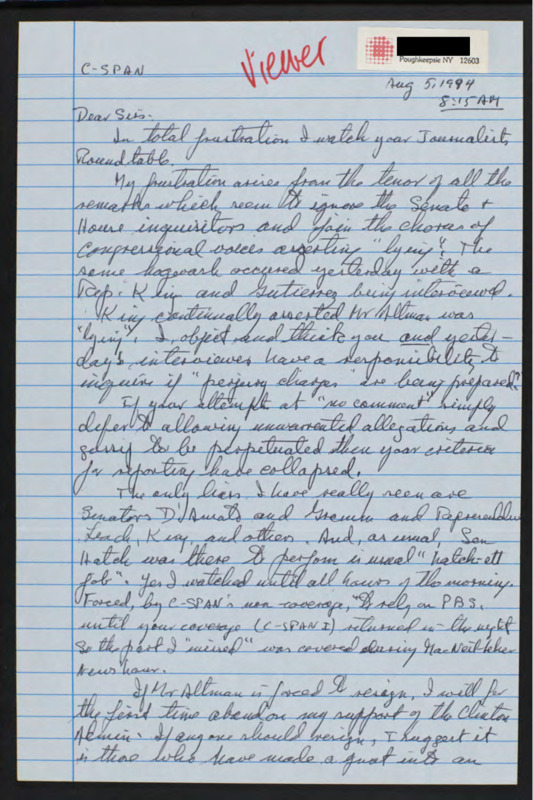 Viewer
Poughkeepsie NY 12603
C-SPAN
Aug 5, 1994
8:15 AM
Dear Sirs.
In total frustration I watch your Journalists
Roundtable.
My frustration arises from the tenor of all the
remarks which seem to ignore the Senate +
House inquisitors and join the chorus of
Congressional voices asserting "lying"! The
same hogwash occured yesterday with a
Rep. King and Gutierrez being interviewed.
King continually asserted Mr Altman was
"lying". I object and think you and yester-
day's interviewer have a responsibility to
inquire if "perjury charges" are being prepared"?
If your attempt at "no comment" simply
defers to allowing unwarrented allegations and
gossip to be perpetuated then your criterion
for reporting have collapsed.
The only liars I have really seen are
Senators D'Amato and Gramm and Representatives
Leach, King, and others. And, as usual, Sen
Hatch was there to perform is usual "hatch-ett
job". Yes I watched until all hours of the morning.
Forced, by C-SPAN's non-coverage, to rely on P.B.S.
until your coverage (C-SPAN I) returned in the night
so the part I "missed" was covered during MacNeil Lehrer
News hour.
If Mr Altman is forced to resign, I will for
the first time abandon my support of the Clinton
Admin. If anyone should resign, I suggest it
is those who have made a gnat into an